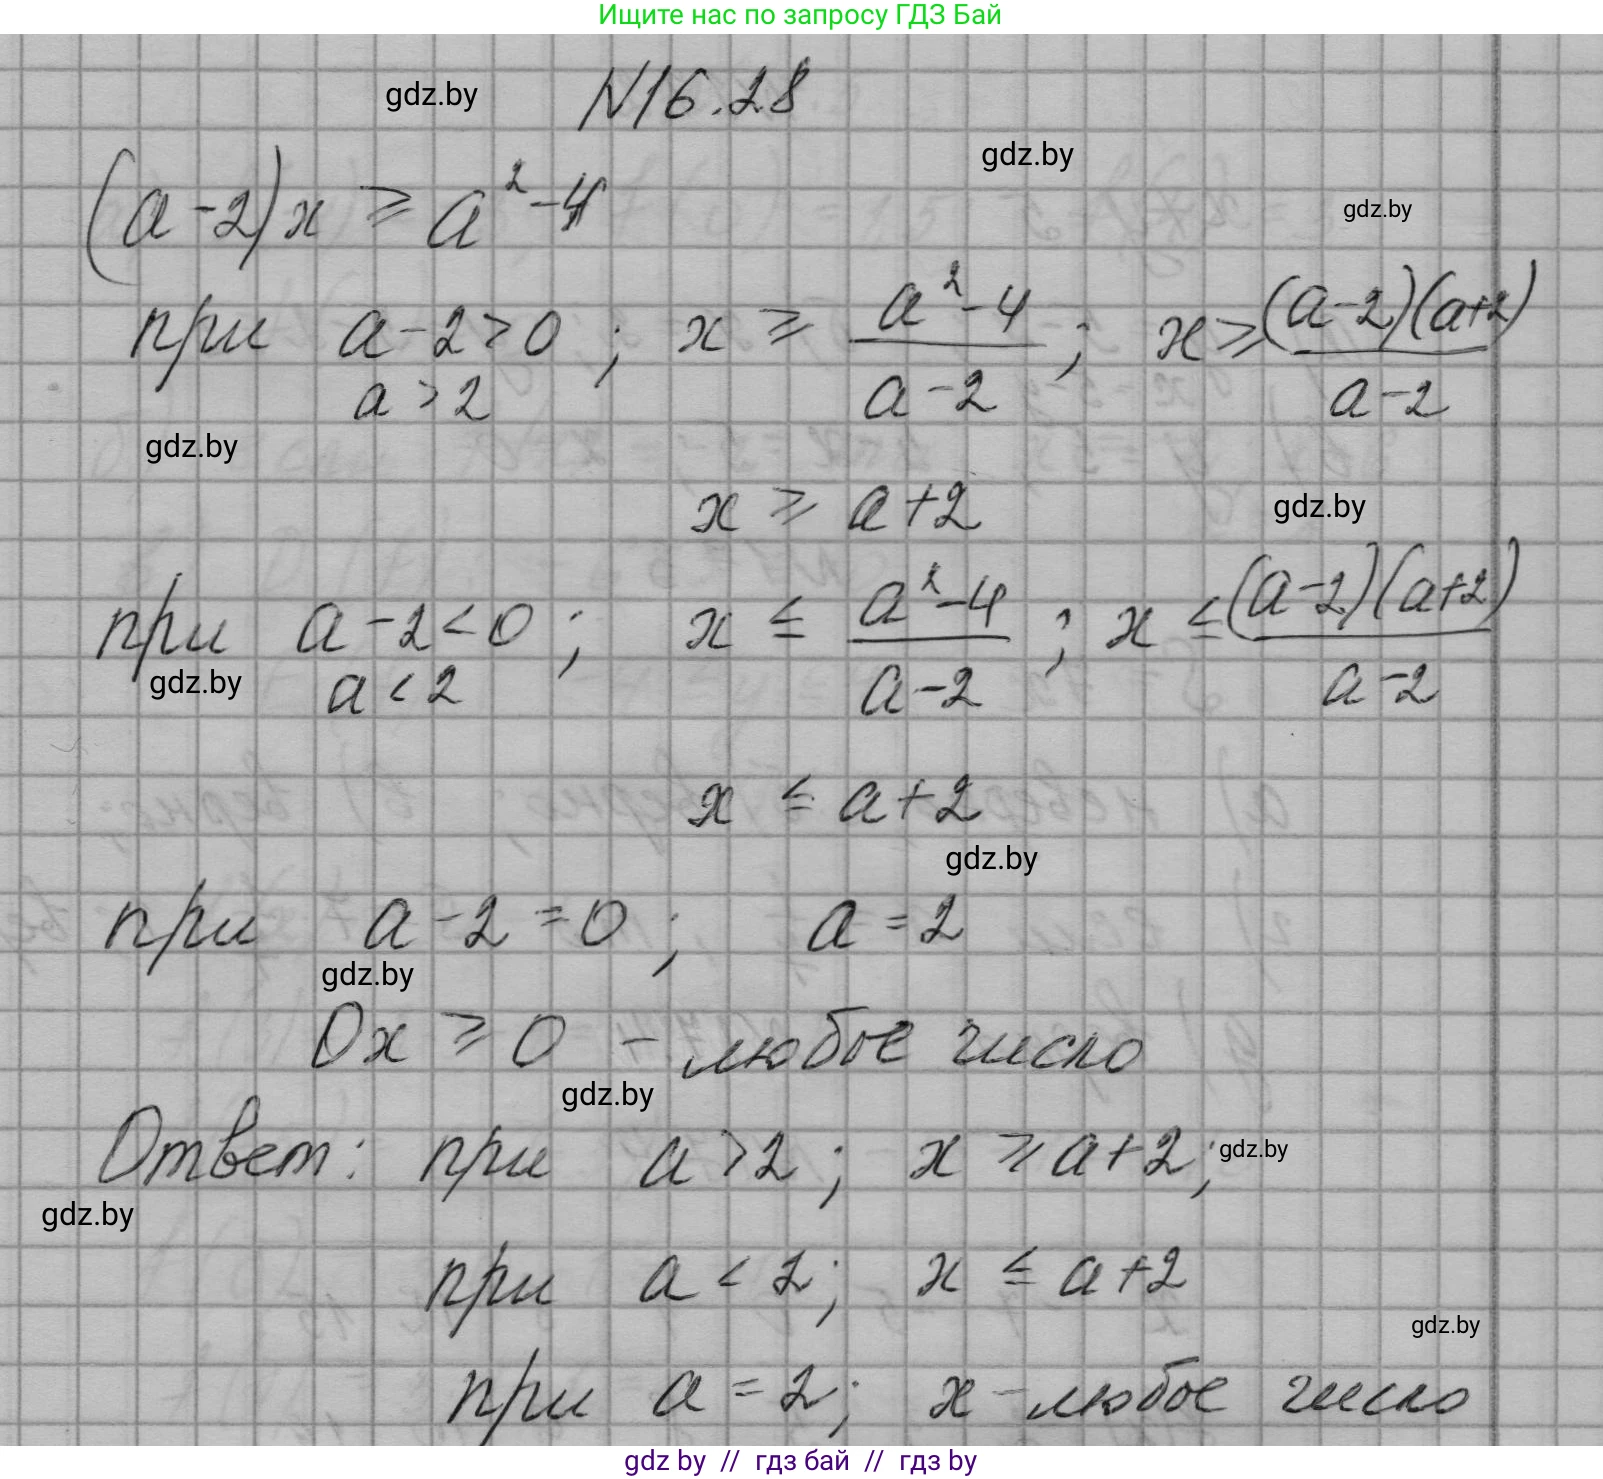 Ищите нас по запросу ГДЗ Бай
gdz.by
N16.28
gdz.by
(a-2)x ≥ a²-4
gdz.by
при a-2>0; x ≥ (a²-4)/(a-2); x ≥ ((a-2)(a+2))/(a-2)
a>2
gdz.by
x ≥ a+2
gdz.by
при a-2<0; x ≤ (a²-4)/(a-2); x ≤ ((a-2)(a+2))/(a-2)
gdz.by
a<2
x ≤ a+2
gdz.by
при a-2=0; a=2
gdz.by
0x ≥ 0 - любое число
gdz.by
Ответ: при a>2; x ≥ a+2;
gdz.by
gdz.by
при a<2; x ≤ a+2
gdz.by
при a=2; x - любое число
gdz by // гдз бай // гдз by